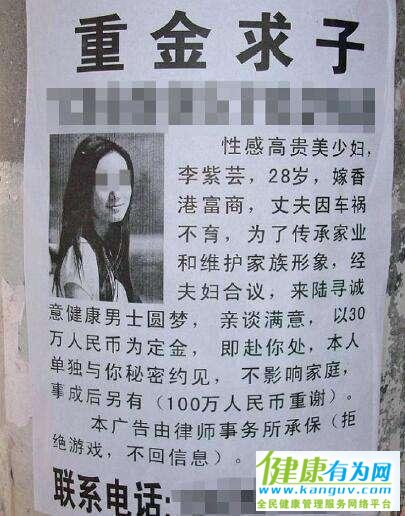 重金求子
性感高贵美少妇，
李紫芸，28岁，嫁香
港富商，丈夫因车祸
不育，为了传承家业
和维护家族形象，经
夫妇合议，来陆寻诚
意健康男士圆梦，亲谈满意，以30
万人民币为定金，即赴你处，本人
单独与你秘密约见，不影响家庭，
事成后另有（100万人民币重谢）。
本广告由律师事务所承保（拒
绝游戏，不回信息）。
联系电话：
健康有为网
www.kanguv.com
全民健康管理服务网络平台